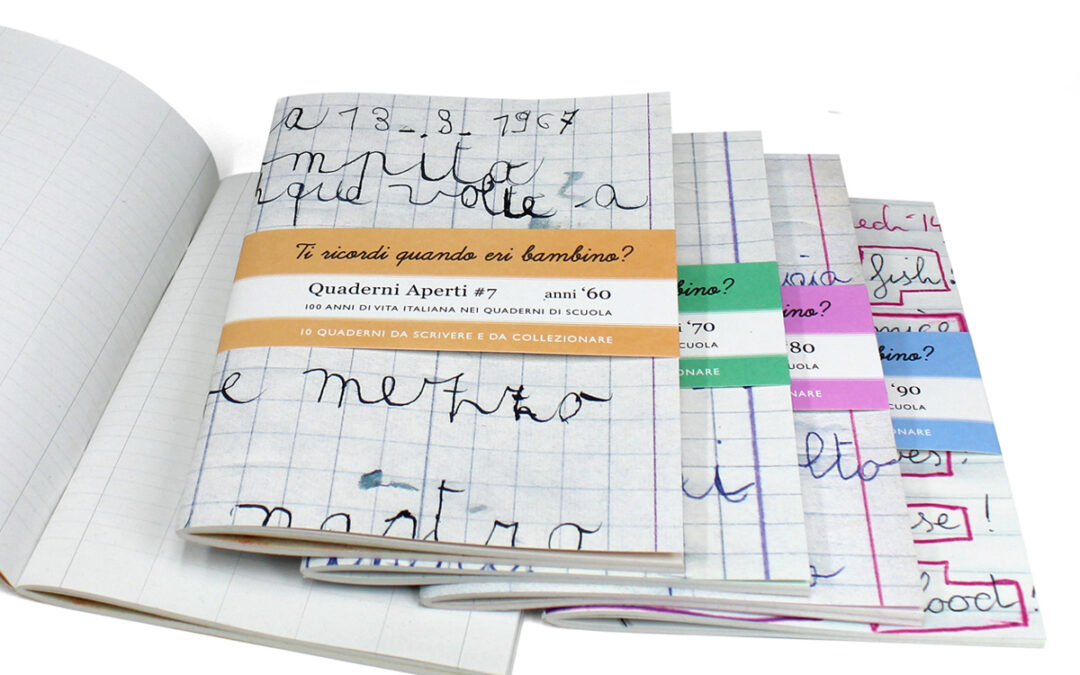 a 13-.9- 1967
mpita
nque volte a
Ti ricordi quando eri bambino?
Quaderni Aperti #7 anni ‘60
100 ANNI DI VITA ITALIANA NEI QUADERNI DI SCUOLA
10 QUADERNI DA SCRIVERE E DA COLLEZIONARE
e mezzo
nastro
bino?
i ‘70
CUOLA
IONARE
ino?
‘80
UOLA
NARE
lto
edi 14
fish!
mice
bino?
‘90
CUOLA
ONARE
es!
se!
ood!